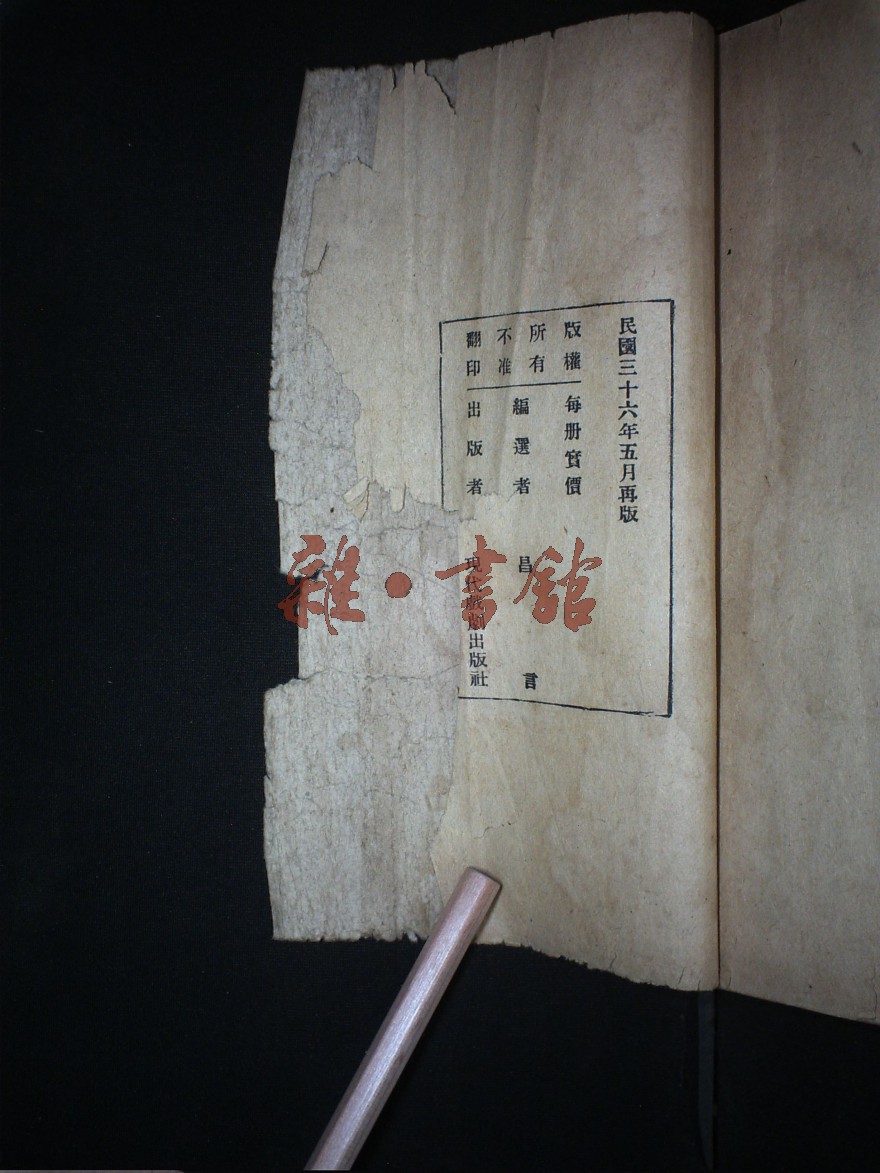 民國三十六年五月再版
版權
所有
不准
翻印
每册實價
編選者 昌言
出版者 現代戲劇出版社
雜·書館